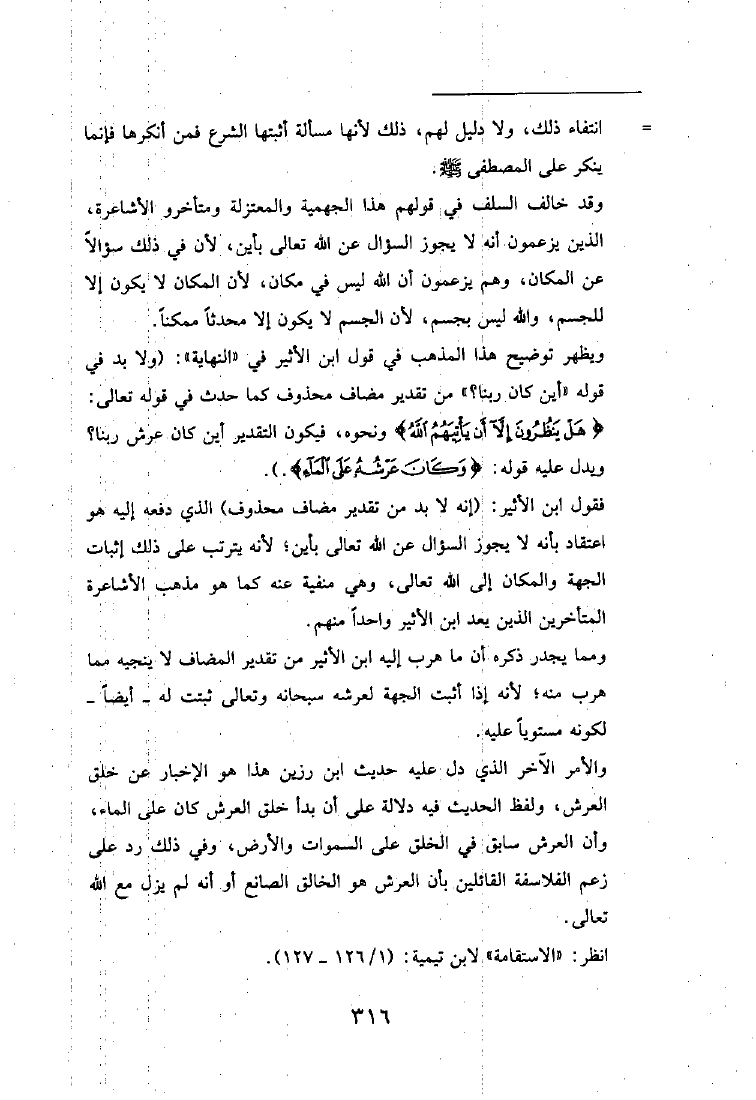 = انتفاء ذلك، ولا دليل لهم، ذلك لأنها مسألة أثبتها الشرع فمن أنكرها فإنما
ينكر على المصطفى ﷺ.
وقد خالف السلف في قولهم هذا الجهمية والمعتزلة ومتأخرو الأشاعرة،
الذين يزعمون أنه لا يجوز السؤال عن الله تعالى بأين، لأن في ذلك سؤالاً
عن المكان، وهم يزعمون أن الله ليس في مكان، لأن المكان لا يكون إلا
للجسم، والله ليس بجسم، لأن الجسم لا يكون إلا محدثاً ممكناً.
ويظهر توضيح هذا المذهب في قول ابن الأثير في «النهاية»: (ولا بد في
قوله «أين كان ربنا؟» من تقدير مضاف محذوف كما حدث في قوله تعالى:
﴿هَلْ يَنظُرُونَ إِلَّا أَن يَأْتِيَهُمُ اللَّهُ﴾ ونحوه، فيكون التقدير أين كان عرش ربنا؟
ويدل عليه قوله: ﴿وَكَانَ عَرْشُهُ عَلَى الْمَاءِ﴾.).
فقول ابن الأثير: (إنه لا بد من تقدير مضاف محذوف) الذي دفعه إليه هو
اعتقاد بأنه لا يجوز السؤال عن الله تعالى بأين؛ لأنه يترتب على ذلك إثبات
الجهة والمكان إلى الله تعالى، وهي منفية عنه كما هو مذهب الأشاعرة
المتأخرين الذين يعد ابن الأثير واحداً منهم.
ومما يجدر ذكره أن ما هرب إليه ابن الأثير من تقدير المضاف لا ينجيه مما
هرب منه؛ لأنه إذا أثبت الجهة لعرشه سبحانه وتعالى ثبتت له ـ أيضاً ـ
لكونه مستوياً عليه.
والأمر الآخر الذي دل عليه حديث ابن رزين هذا هو الإخبار عن خلق
العرش، ولفظ الحديث فيه دلالة على أن بدأ خلق العرش كان على الماء،
وأن العرش سابق في الخلق على السموات والأرض، وفي ذلك رد على
زعم الفلاسفة القائلين بأن العرش هو الخالق الصانع أو أنه لم يزل مع الله
تعالى.
انظر: «الاستقامة» لابن تيمية: (١/ ١٢٦ ـ ١٢٧).
٣١٦